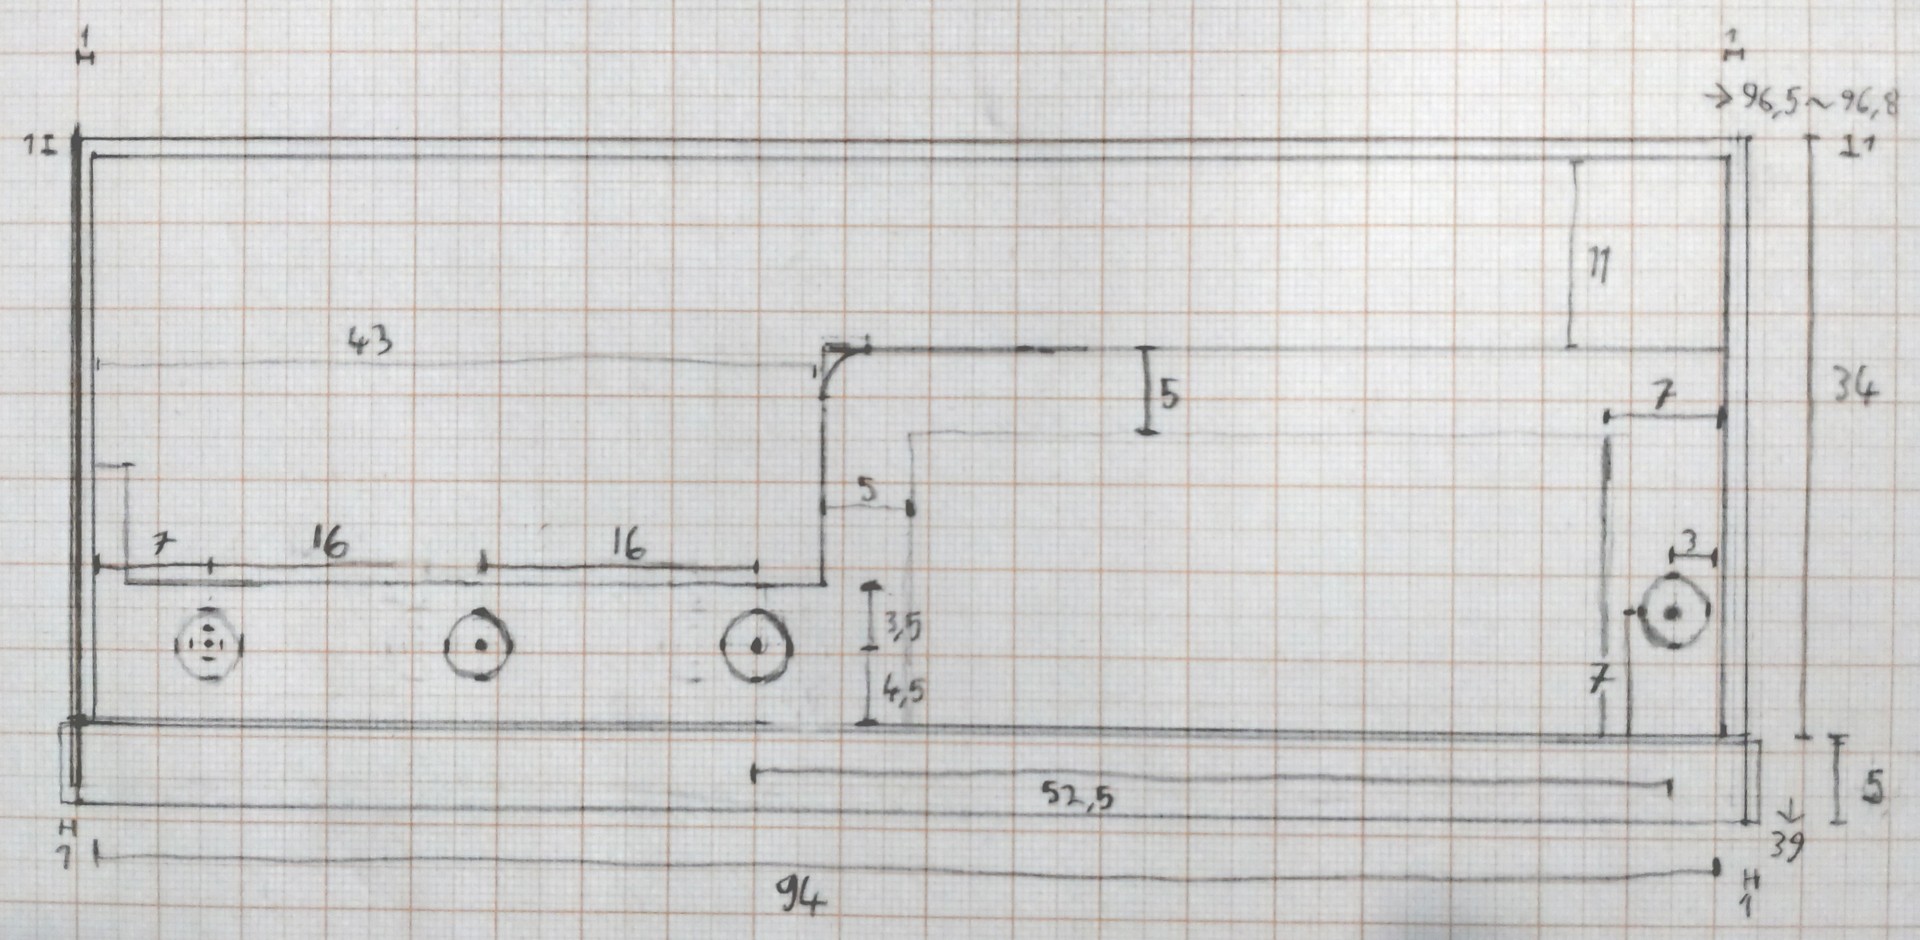 1
1
→ 96,5 ~ 96,8
1
1
11
43
34
5
7
5
7
16
16
3
3,5
7
4,5
52,5
5
39
1
94
1